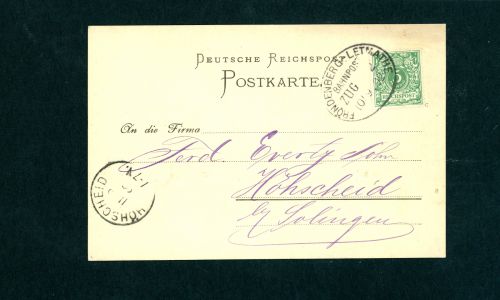 DEUTSCHE REICHSPOST
POSTKARTE.
FRÖNDENBERG-LETMATHE
BAHNPOST
ZUG
5
REICHSPOST
An die Firma
Ferd. Everty Sohn
Höhscheid
b/ Solingen
HÖHSCHEID